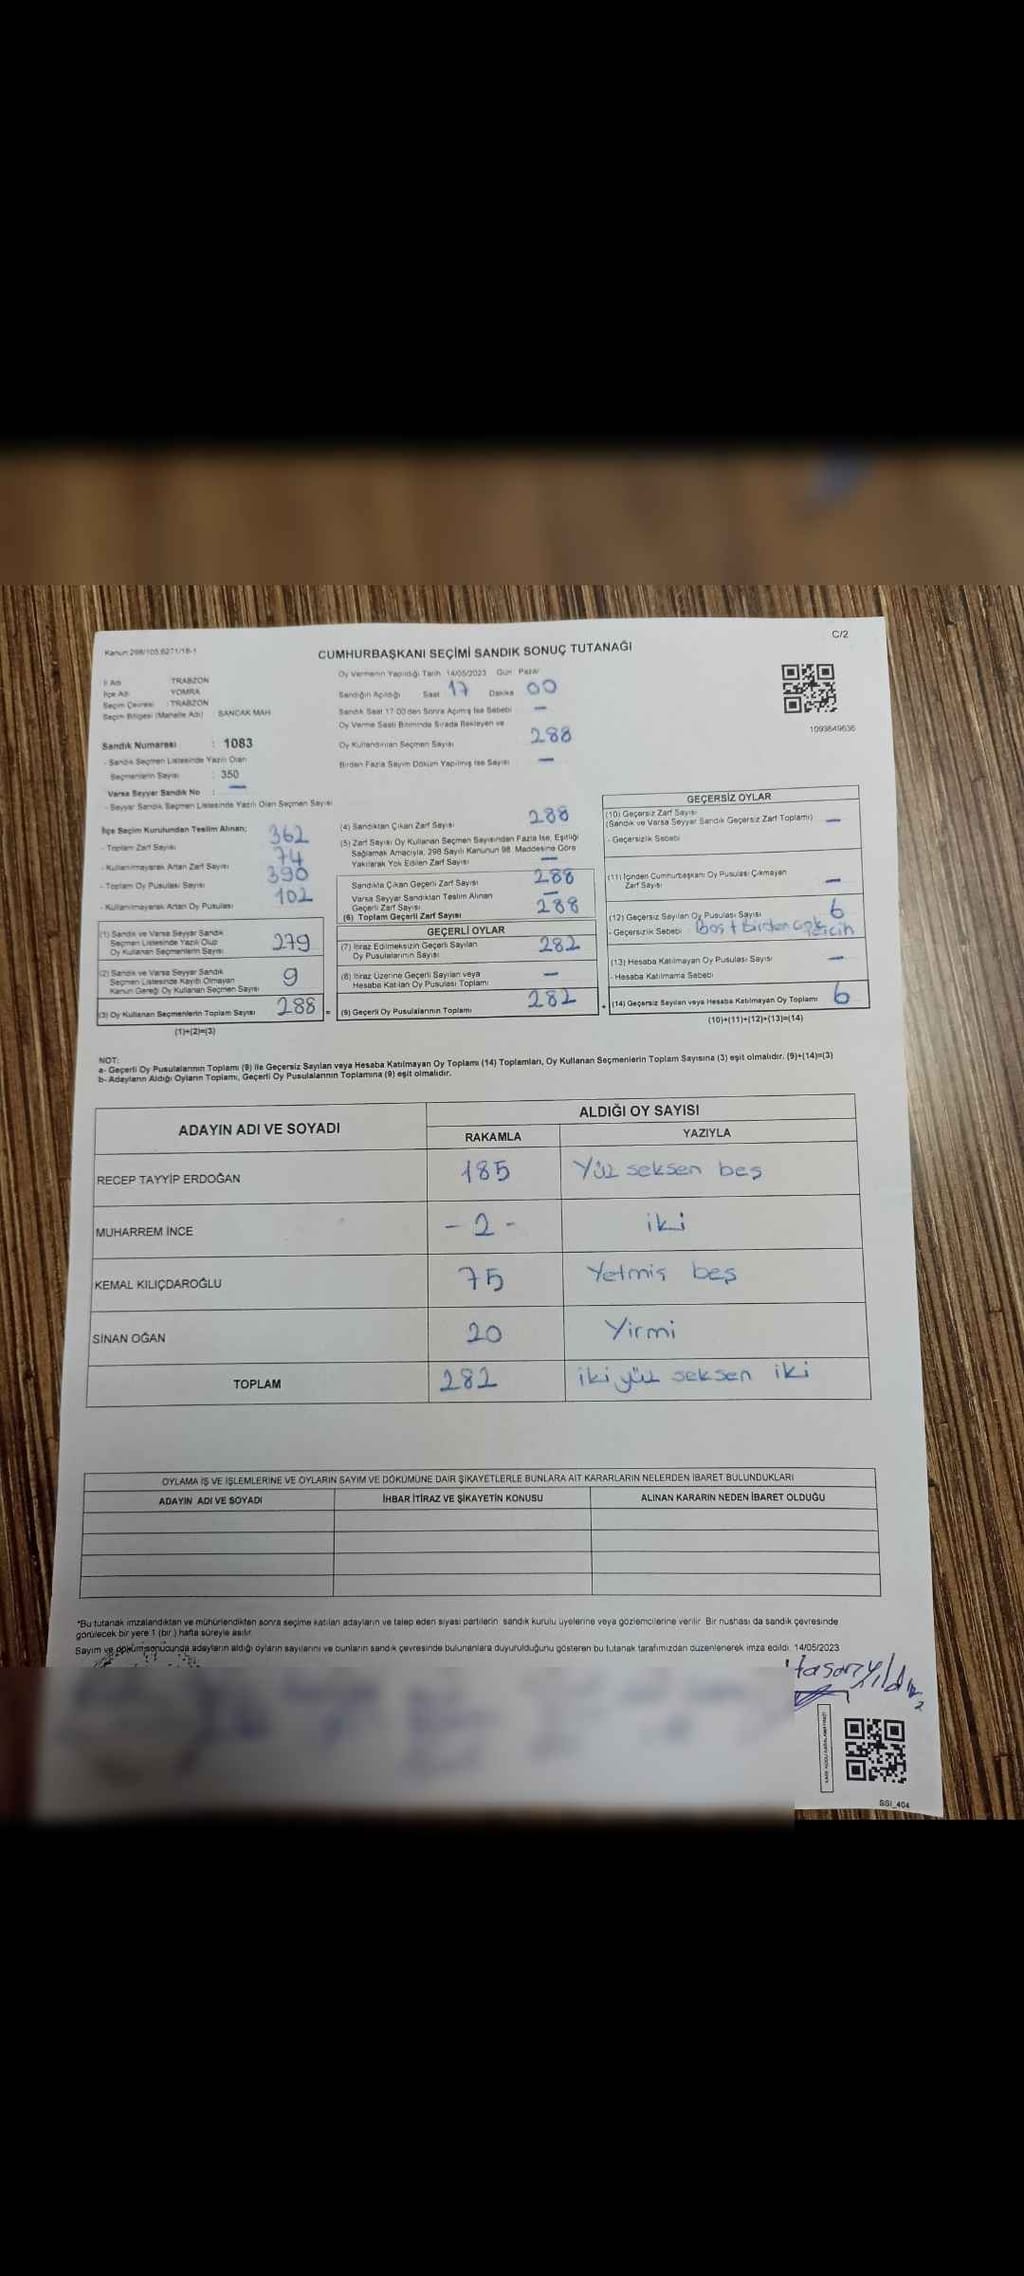 C/2
Kanun:298/105,6271/18-1
CUMHURBAŞKANI SEÇİMİ SANDIK SONUÇ TUTANAĞI
İl Adı : TRABZON
İlçe Adı : YOMRA
Seçim Çevresi : TRABZON
Seçim Bölgesi (Mahalle Adı) : SANCAK MAH
Sandık Numarası : 1083
- Sandık Seçmen Listesinde Yazılı Olan
Seçmenlerin Sayısı : 350
Varsa Seyyar Sandık No : —
- Seyyar Sandık Seçmen Listesinde Yazılı Olan Seçmen Sayısı
Oy Vermenin Yapıldığı Tarih 14/05/2023 Gün: Pazar
Sandığın Açıldığı Saat 17 Dakika 00
Sandık Saat 17:00'den Sonra Açılmış İse Sebebi —
Oy Verme Saati Bitiminde Sırada Bekleyen ve
Oy Kullandırılan Seçmen Sayısı 288
Birden Fazla Sayım Döküm Yapılmış İse Sayısı —
1093849636
İlçe Seçim Kurulundan Teslim Alınan;
- Toplam Zarf Sayısı 362
- Kullanılmayarak Artan Zarf Sayısı 74
- Toplam Oy Pusulası Sayısı 390
- Kullanılmayarak Artan Oy Pusulası 102
(1) Sandık ve Varsa Seyyar Sandık
Seçmen Listesinde Yazılı Olup
Oy Kullanan Seçmenlerin Sayısı 279
(2) Sandık ve Varsa Seyyar Sandık
Seçmen Listesinde Kayıtlı Olmayan
Kanun Gereği Oy Kullanan Seçmen Sayısı 9
(3) Oy Kullanan Seçmenlerin Toplam Sayısı 288 =
(1)+(2)=(3)
(4) Sandıktan Çıkan Zarf Sayısı 288
(5) Zarf Sayısı Oy Kullanan Seçmen Sayısından Fazla İse, Eşitliği
Sağlamak Amacıyla, 298 Sayılı Kanunun 98. Maddesine Göre
Yakılarak Yok Edilen Zarf Sayısı —
Sandıkta Çıkan Geçerli Zarf Sayısı 288
Varsa Seyyar Sandıktan Teslim Alınan
Geçerli Zarf Sayısı —
(6) Toplam Geçerli Zarf Sayısı 288
GEÇERLİ OYLAR
(7) İtiraz Edilmeksizin Geçerli Sayılan
Oy Pusulalarının Sayısı 282
(8) İtiraz Üzerine Geçerli Sayılan veya
Hesaba Katılan Oy Pusulası Toplamı —
(9) Geçerli Oy Pusulalarının Toplamı 282 +
GEÇERSİZ OYLAR
(10) Geçersiz Zarf Sayısı
(Sandık ve Varsa Seyyar Sandık Geçersiz Zarf Toplamı) —
- Geçersizlik Sebebi
(11) İçinden Cumhurbaşkanı Oy Pusulası Çıkmayan
Zarf Sayısı —
(12) Geçersiz Sayılan Oy Pusulası Sayısı 6
- Geçersizlik Sebebi Boş + Birden çok
(13) Hesaba Katılmayan Oy Pusulası Sayısı —
- Hesaba Katılmama Sebebi
(14) Geçersiz Sayılan veya Hesaba Katılmayan Oy Toplamı 6
(10)+(11)+(12)+(13)=(14)
NOT:
a- Geçerli Oy Pusulalarının Toplamı (9) ile Geçersiz Sayılan veya Hesaba Katılmayan Oy Toplamı (14) Toplamları, Oy Kullanan Seçmenlerin Toplam Sayısına (3) eşit olmalıdır. (9)+(14)=(3)
b- Adayların Aldığı Oyların Toplamı, Geçerli Oy Pusulalarının Toplamına (9) eşit olmalıdır.
ADAYIN ADI VE SOYADI ALDIĞI OY SAYISI
RAKAMLA YAZIYLA
RECEP TAYYİP ERDOĞAN 185 Yüz seksen beş
MUHARREM İNCE - 2 - iki
KEMAL KILIÇDAROĞLU 75 Yetmiş beş
SİNAN OĞAN 20 Yirmi
TOPLAM 282 iki yüz seksen iki
OYLAMA İŞ VE İŞLEMLERİNE VE OYLARIN SAYIM VE DÖKÜMÜNE DAİR ŞİKAYETLERLE BUNLARA AİT KARARLARIN NELERDEN İBARET BULUNDUKLARI
ADAYIN ADI VE SOYADI İHBAR İTİRAZ VE ŞİKAYETİN KONUSU ALINAN KARARIN NEDEN İBARET OLDUĞU
*Bu tutanak imzalandıktan ve mühürlendikten sonra seçime katılan adayların ve talep eden siyasi partilerin sandık kurulu üyelerine veya gözlemcilerine verilir. Bir nushası da sandık çevresinde
görülecek bir yere 1 (bir ) hafta süreyle asılır.
Sayım ve döküm sonucunda adayların aldığı oyların sayılarını ve bunların sandık çevresinde bulunanlara duyurulduğunu gösteren bu tutanak tarafımızdan düzenlenerek imza edildi. 14/05/2023
SSI_404